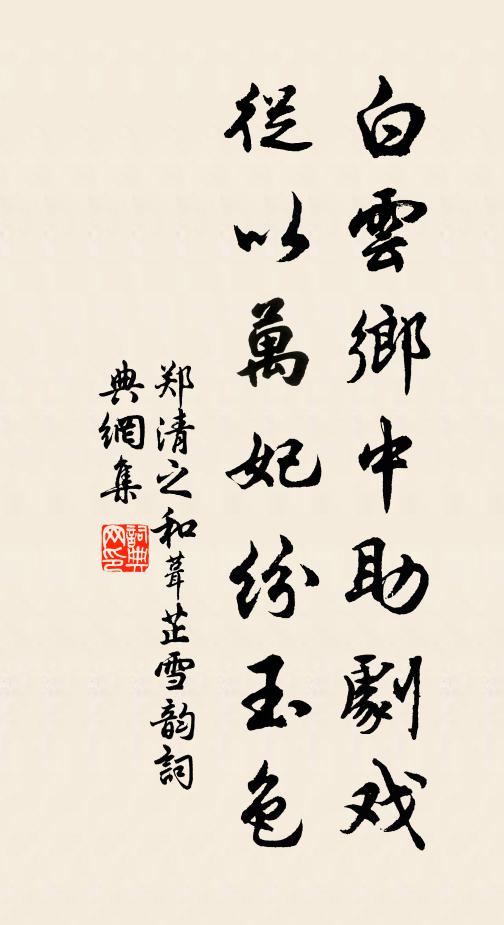 白雲鄉中助劇戏
從以萬妃紛玉色
郑清之和葺芷雪韵詞
典網集
詞典網印